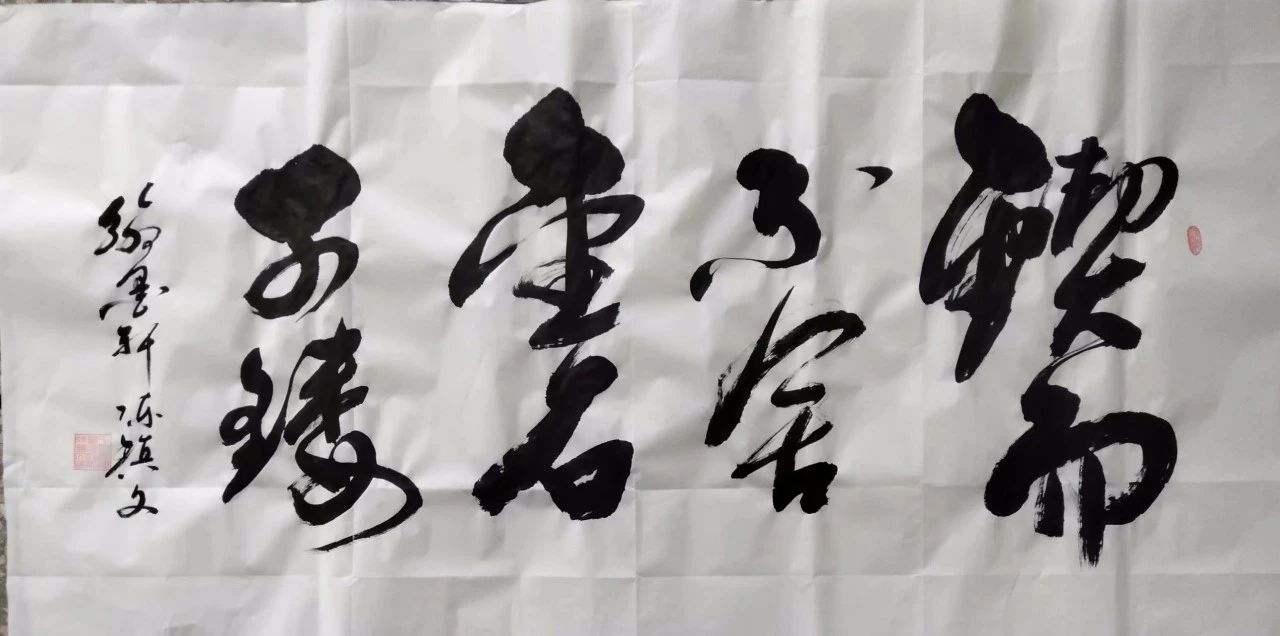 锲而
不舍
金石
可镂
翰墨轩陈镇文